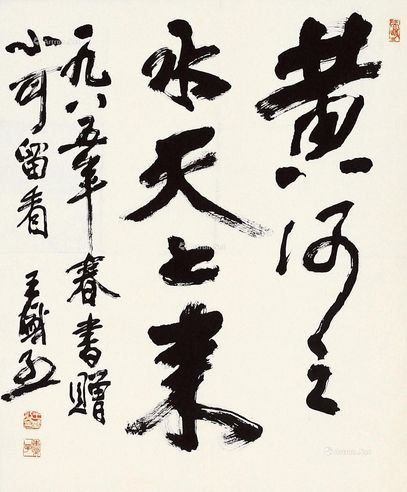 黄河之
水天上来
一九八五年春书赠
小可留看 王